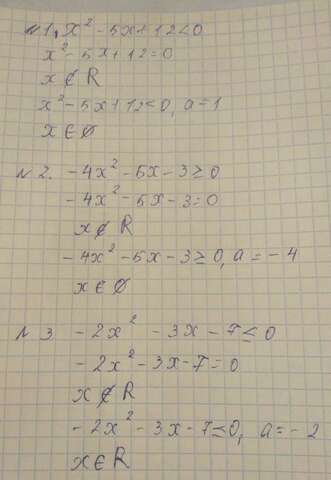 №1. x² - 5x + 12 < 0
x² - 5x + 12 = 0
x ∉ R
x² - 5x + 12 < 0, a = 1
x ∈ ∅
№2. -4x² - 5x - 3 ≥ 0
-4x² - 5x - 3 = 0
x ∉ R
-4x² - 5x - 3 ≥ 0, a = -4
x ∈ ∅
№3 -2x² - 3x - 7 ≤ 0
-2x² - 3x - 7 = 0
x ∉ R
-2x² - 3x - 7 ≤ 0, a = -2
x ∈ R